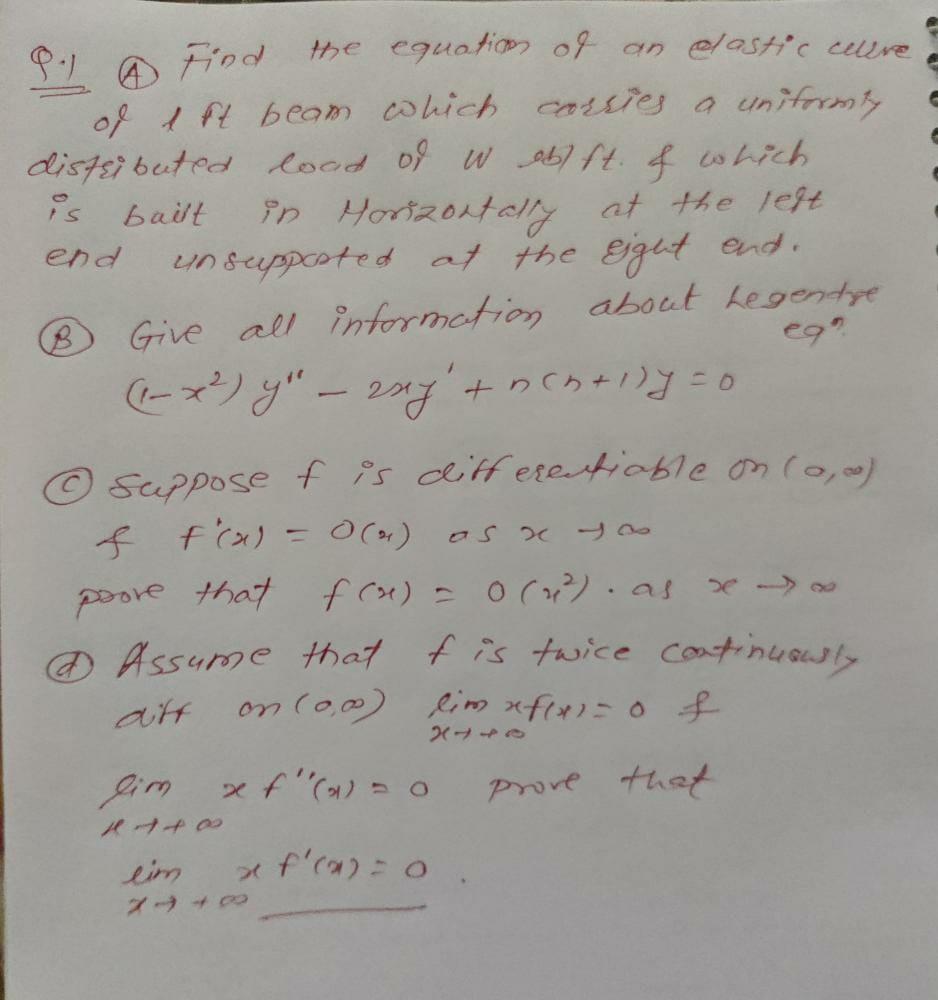 Q.1 (A) Find the equation of an elastic curve
of l ft beam which carries a uniformly
distributed load of W lb/ft. & which
is built in Horizontally at the left
end unsupported at the right end.
(B) Give all information about Legendre
eqⁿ.
(1-x²) y'' - 2xy' + n(n+1)y = 0
(C) suppose f is differentiable on (0,∞)
& f'(x) = O(x) as x → ∞
prove that f(x) = O(x²). as x → ∞
(d) Assume that f is twice continuously
diff on (0,∞) lim xf(x) = 0 &
x→+∞
lim x f''(x) = 0 prove that
x→+∞
lim x f'(x) = 0.
x→+∞